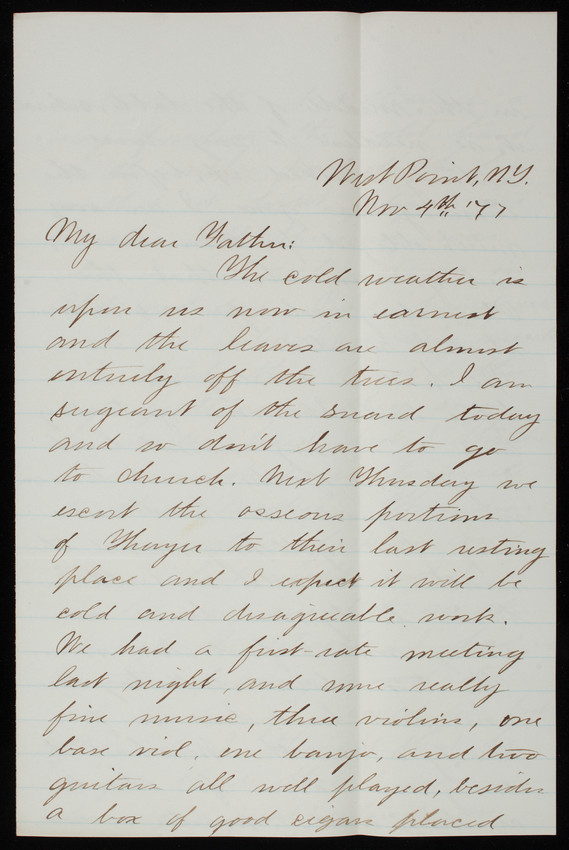 West Point, N.Y.
Nov 4th '77
My dear Father:
The cold weather is
upon us now in earnest
and the leaves are almost
entirely off the trees. I am
sergeant of the Guard today
and so don't have to go
to church. Next Thursday we
escort the osseous portions
of Thayer to their last resting
place and I expect it will be
cold and disagreeable work.
We had a first-rate meeting
last night, and some really
fine music, three violins, one
base viol, one banjo, and two
guitars all well played, besides
a box of good cigars placed